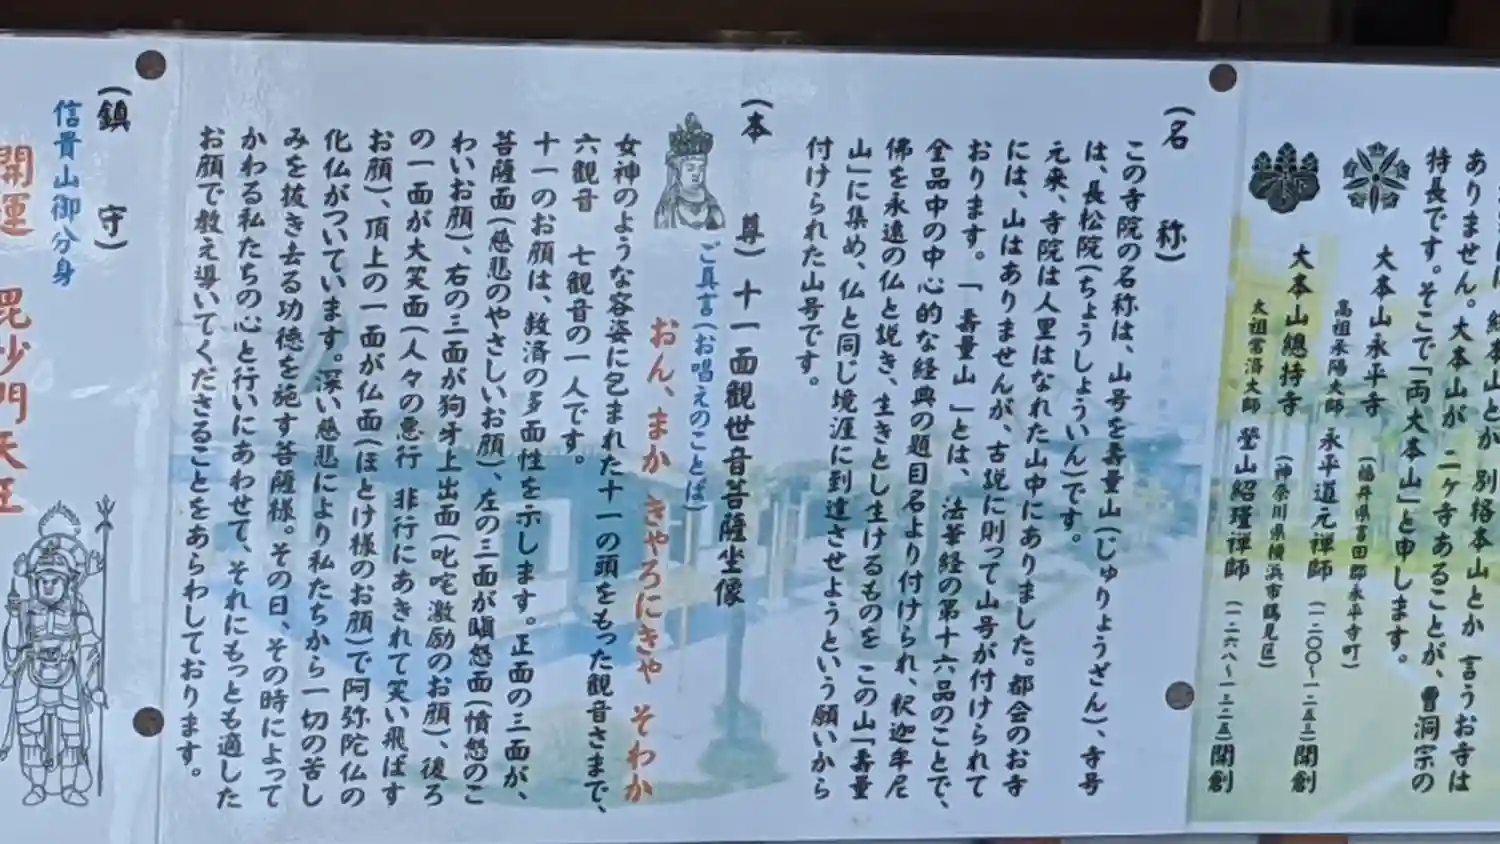 ありません。大本山が 二ヶ寺あることが、曹洞宗の
特長です。そこで「両大本山」と申します。
大本山永平寺
高祖承陽大師 永平道元禅師 (一二〇〇~一二五三)開創
大本山總持寺
(神奈川県横浜市鶴見区)
太祖常済大師 瑩山紹瑾禅師 (一二六八~一三二五)開創
(名 称)
この寺院の名称は、山号を壽量山(じゅりょうざん)、寺号
は、長松院(ちょうしょういん)です。
元来、寺院は人里はなれた山中にありました。都会のお寺
には、山はありませんが、古説に則って山号が付けられて
おります。「壽量山」とは、法華経の第十六品のことで、
全品中の中心的な経典の題目名より付けられ、釈迦牟尼
佛を永遠の仏と説き、生きとし生けるものを この山「壽量
山」に集め、仏と同じ境涯に到達させようという願いから
付けられた山号です。
(本 尊) 十一面観世音菩薩坐像
ご真言(お唱えのことば)
おん、まか きゃろにきゃ そわか
女神のような容姿に包まれた十一の頭をもった観音さまで、
六観音 七観音の一人です。
十一のお顔は、救済の多面性を示します。正面の三面が、
菩薩面(慈悲のやさしいお顔)、左の三面が瞋怒面(憤怒のこ
わいお顔)、右の三面が狗牙上出面(叱咤激励のお顔)、後ろ
の一面が大笑面(人々の悪行 非行にあきれて笑い飛ばす
お顔)、頂上の一面が仏面(ほとけ様のお顔)で阿弥陀仏の
化仏がついています。深い慈悲により私たちから一切の苦し
みを抜き去る功徳を施す菩薩様。その日、その時によって
かわる私たちの心と行いにあわせて、それにもっとも適した
お顔で教え導いてくださることをあらわしております。
(鎮 守)
信貴山御分身
開運 毘沙門天王